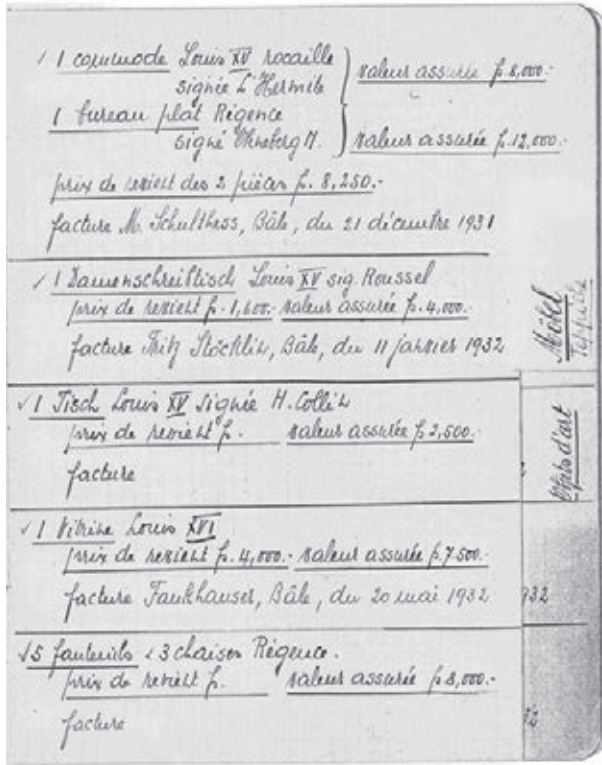 1 commode Louis XV rocaille
signée L'Hermite
valeur assurée fr. 8,000.-
1 bureau plat Régence
signé H.
valeur assurée fr. 12,000.-
prix de revient des 2 pièces fr. 8,250.-
facture M. Schulthess, Bâle, du 21 décembre 1931
✓ 1 Damenschreibtisch Louis XV sig. Roussel
prix de revient fr. 1,600.- valeur assurée fr. 4,000.-
facture Fritz Stöcklin, Bâle, du 11 janvier 1932
✓ 1 Tisch Louis XV signée H. Collin
prix de revient fr. valeur assurée fr. 2,500.-
facture
✓ 1 Vitrine Louis XVI
prix de revient fr. 4,000.- valeur assurée fr. 7500.-
facture Fankhauser, Bâle, du 20 mai 1932
✓ 5 fauteuils & 3 chaises Régence.
prix de revient fr. valeur assurée fr. 8,000.-
facture
Möbel
Teppiche
Objets d'art
932